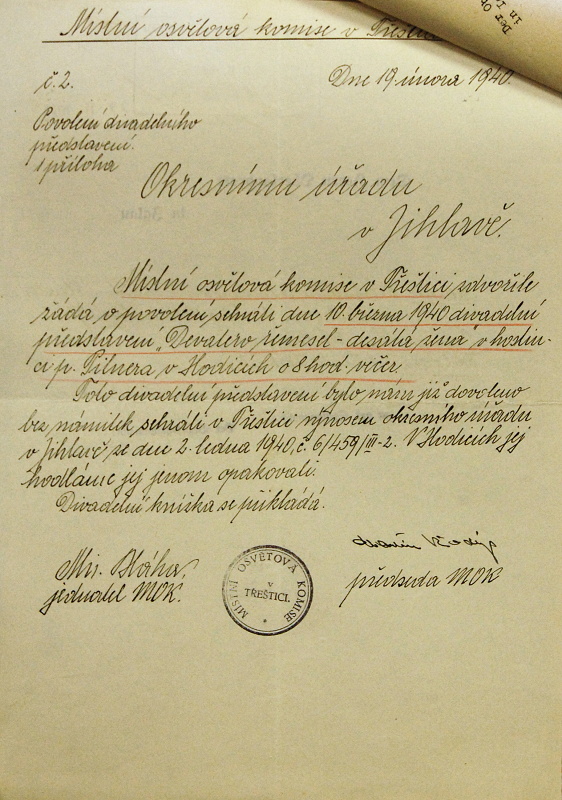 Místní osvětová komise v Třeštici
Dne 19. února 1940.
č. 2.
Povolení divadelního
představení.
1 příloha
Okresnímu úřadu
v Jihlavě.
Místní osvětová komise v Třeštici zdvořile
žádá o povolení sehráti dne 10. března 1940 divadelní
představení „Devatero řemesel - desátá žena" v hostin-
ci p. Pilnera v Hodicích o 8 hod. večer.
Toto divadelní představení bylo nám již dovoleno
bez námitek sehráti v Třeštici výnosem okresního úřadu
v Jihlavě ze dne 2. ledna 1940, č. 6/459/III-2. V Hodicích jej
hodláme jej jenom opakovati.
Divadelní knížka se přikládá.
Bláha,
jednatel MOK.
předseda MOK
MÍSTNÍ OSVĚTOVÁ KOMISE
V
TŘEŠTICI.
Der
in